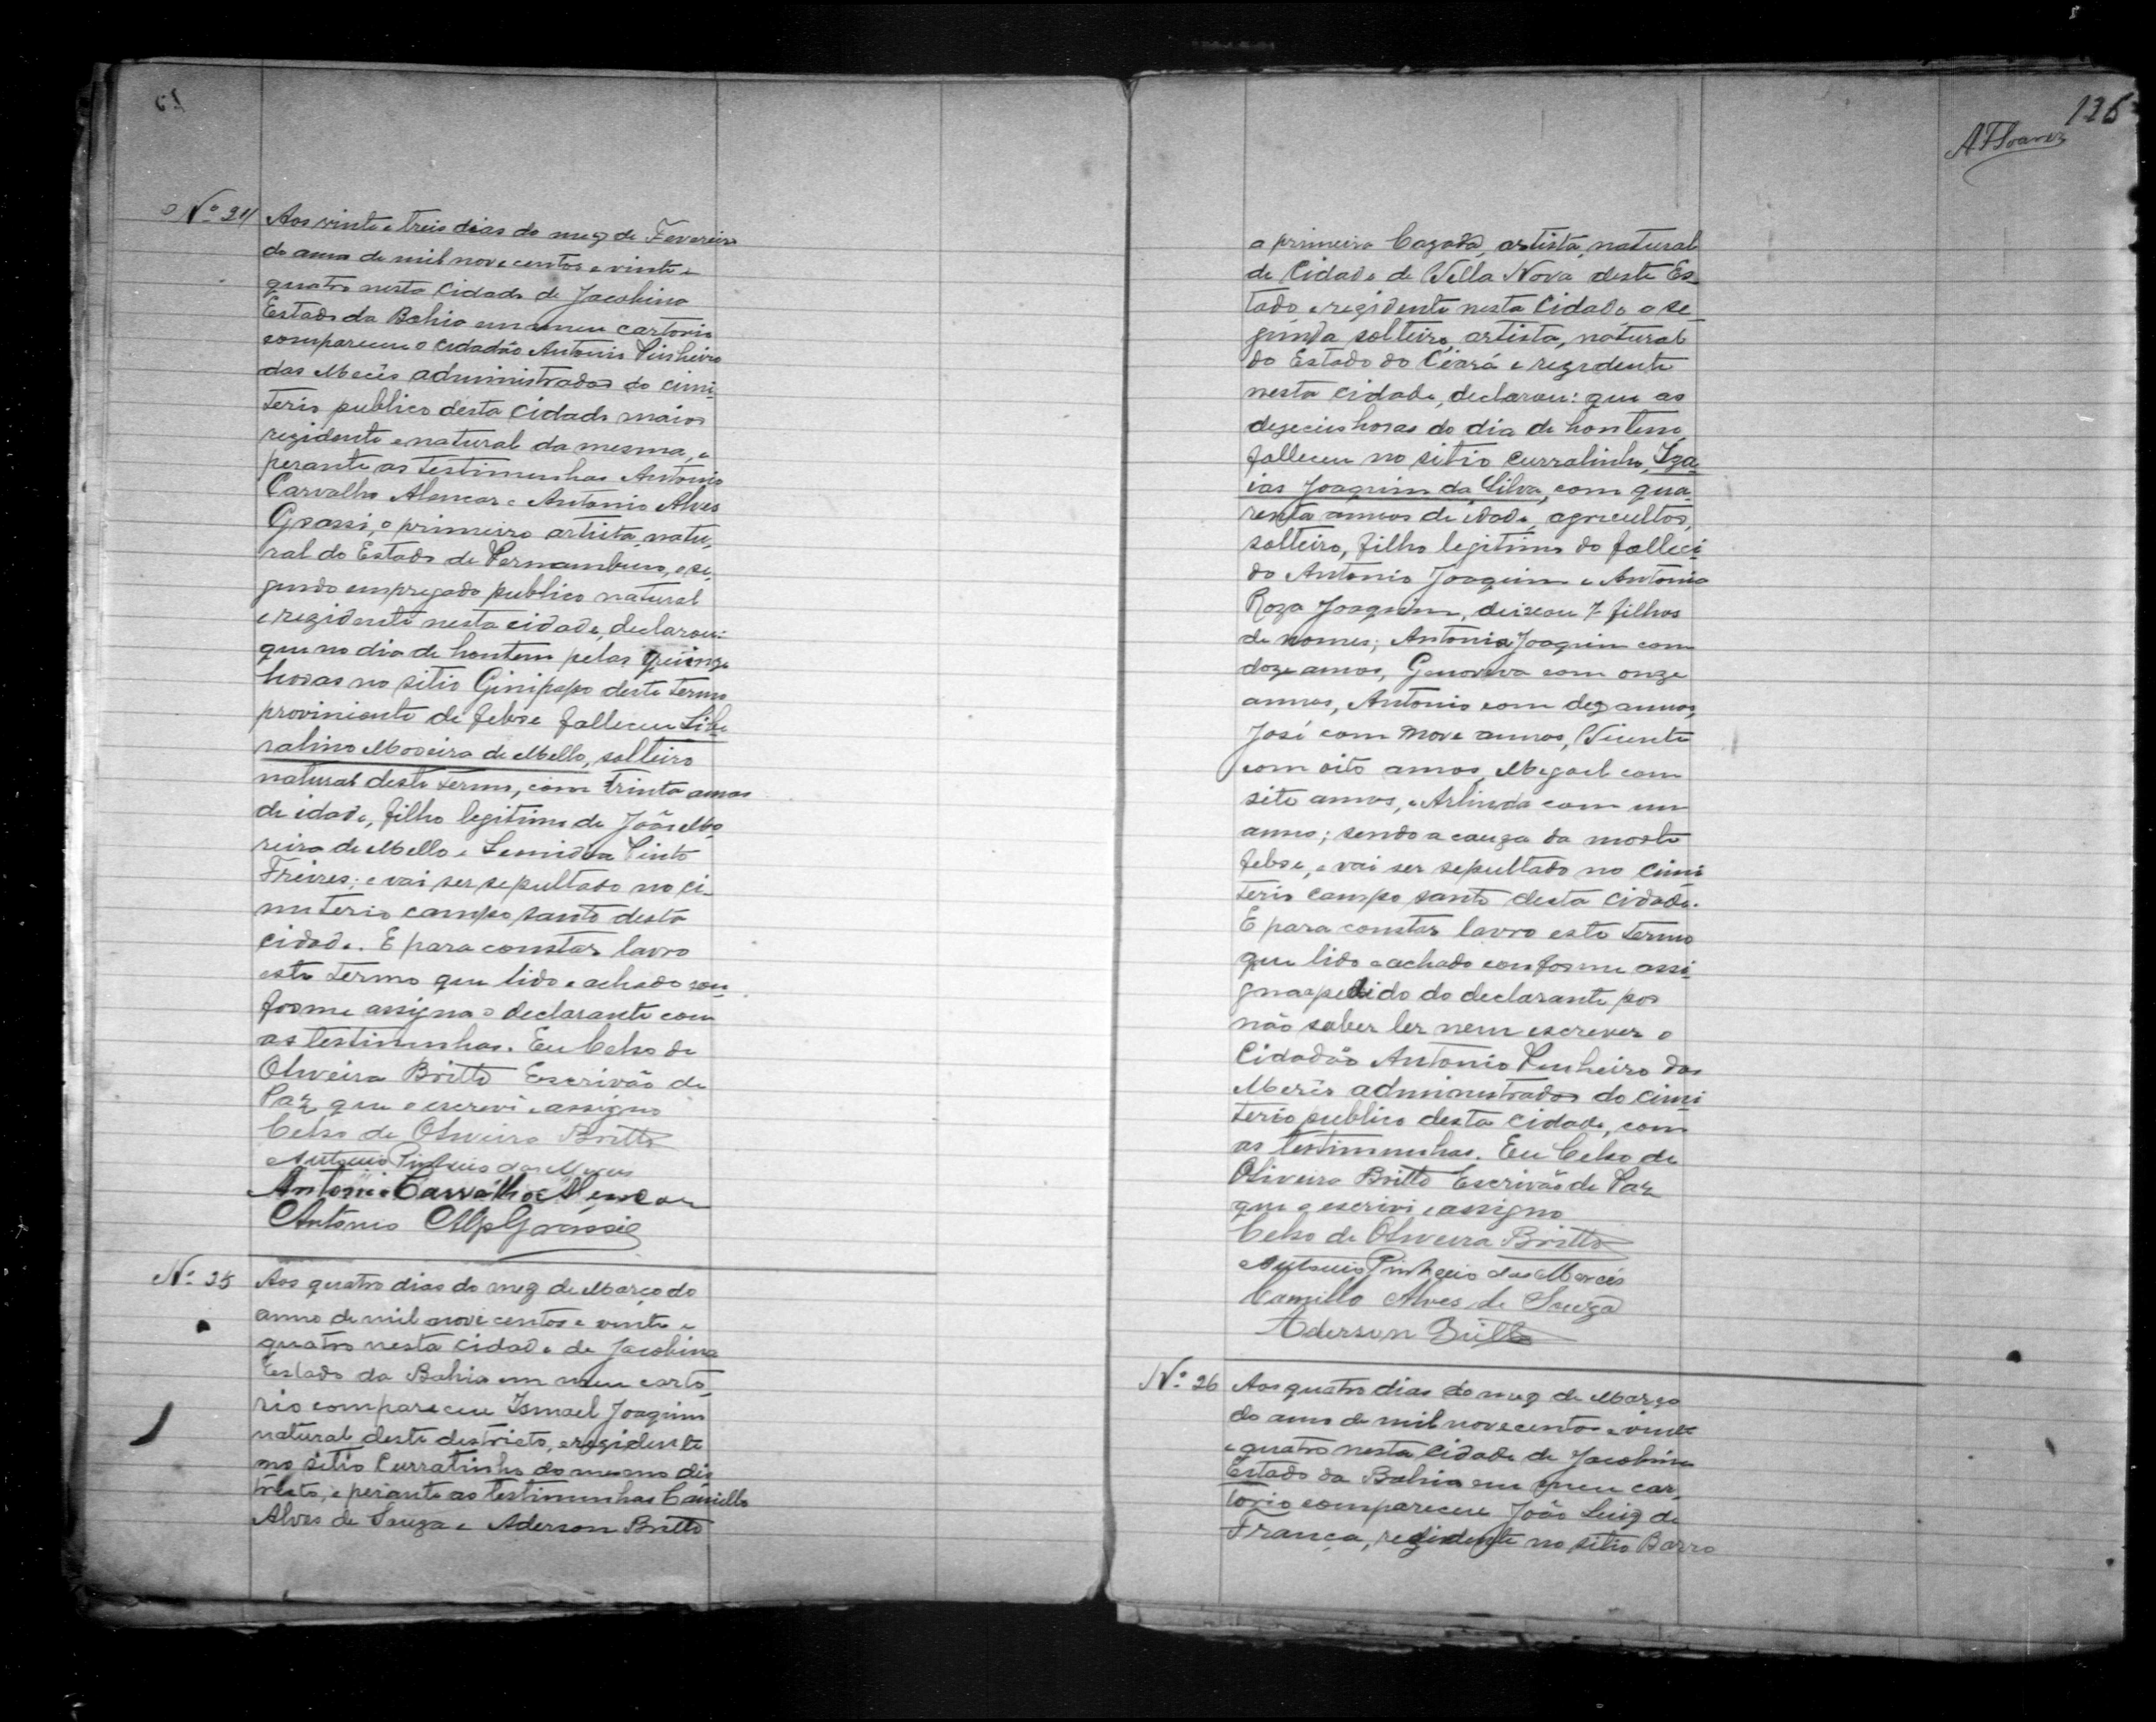 Nº 24
Aos vinte e treis dias do mez de Fevereiro
do anno de mil nove centos e vinte e
quatro nesta Cidade de Jacobina
Estado da Bahia em meu cartorio
compareceu o cidadão Antonio Pinheiro
das Mecês administrador do cimi-
terio publico desta Cidade maior
rezidente e natural da mesma, e
perante as testimunhas Antonio
Carvalho Alencar e Antonio Alves
Grassi, o primeiro artista, natu-
ral do Estado de Pernambuco, o se-
gundo empregado publico natural
e rezidente nesta cidade, declarou:
que no dia de hontem pelas quinze
horas no sitio Ginipapo deste termo
proviniente de febre falleceu Libe-
ralino Moreira de Mello, solteiro
natural deste termo, com trinta annos
de idade, filho legitimo de João Mo-
reira de Mello e Leonidia Pinto
Freires; e vai ser sepultado no ci-
miterio campo santo desta
cidade. E para constar lavro
este termo que lido e achado con-
forme assigna o declarante com
as testimunhas. Eu Celso de
Oliveira Britto Escrivão de
Paz que o escrevi e assigno
Celso de Oliveira Britto
Antonio Pinheiro das Merces
Antonio Carvalho Alencar
Antonio Alves Grassi
Nº 25
Aos quatro dias do mez de Março do
anno de mil nove centos e vinte e
quatro nesta cidade de Jacobina
Estado da Bahia em meu carto-
rio compareceu Ismael Joaquim
natural deste districto, e rezidente
no sitio Curralinho do mesmo dis-
tricto, e perante as testimunhas Camillo
Alves de Souza e Aderson Britto
126
AFSoares
o primeiro Cazado, artista, natural
de Cidade de Villa Nova deste Es-
tado e rezidente nesta Cidade o se-
gundo solteiro, artista, natural
do Estado do Ceará e rezidente
nesta cidade, declarou: que as
dezeceis horas do dia de hontem
falleceu no sitio Curralinho, Iza-
ias Joaquim da Silva, com qua-
renta annos de idade, agricultor,
solteiro, filho legitimo do falleci-
do Antonio Joaquim e Antonia
Roza Joaquim, deixou 7 filhos
de nomes; Antonia Joaquim com
doze annos, Genoveva com onze
annos, Antonio com dez annos,
José com nove annos, Vicente
com oito annos, Megael com
sete annos, e Arlinda com um
anno; sendo a cauza da morte
febre, e vai ser sepultado no Cimi-
terio Campo santo desta cidade.
E para constar lavro este termo
que lido e achado conforme assi-
gna a pedido do declarante por
não saber ler nem escrever o
Cidadão Antonio Pinheiro das
Mercês administrador do cimi-
terio publico desta Cidade, com
as testimunhas. Eu Celso de
Oliveira Britto Escrivão de Paz
que o escrivi e assigno
Celso de Oliveira Britto
Antonio Pinheiro das Mercês
Camillo Alves de Souza
Aderson Britto
Nº 26
Aos quatro dias do mez de Março
do anno de mil novecentos e vinte
e quatro nesta Cidade de Jacobina
Estado da Bahia em meu car-
torio compareceu João Luiz de
França, rezidente no sitio Barro